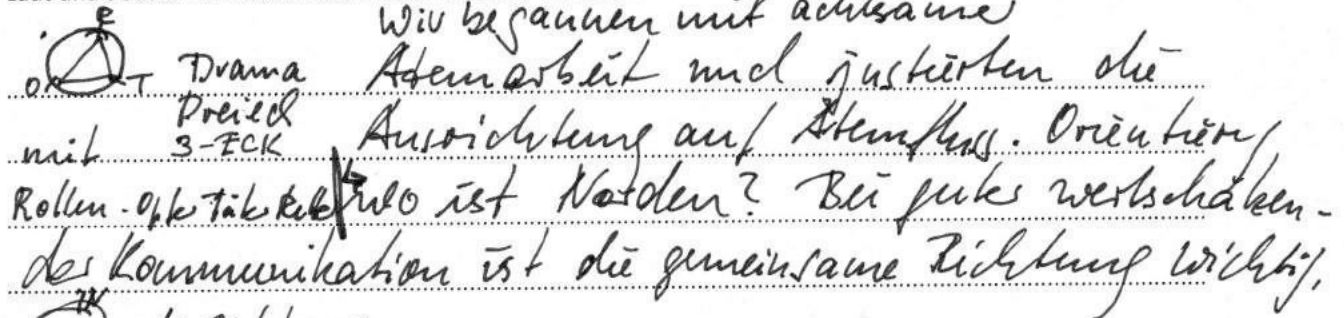 Wir begannen mit achtsame
R
O T Drama Atemarbeit und justierten die
Dreieck
mit 3-ECK Ausrichtung auf Atemfluss. Orientierung
Rollen-Opfer Täter Retter wo ist Norden? Bei guter wertschätzen-
der Kommunikation ist die gemeinsame Richtung wichtig.